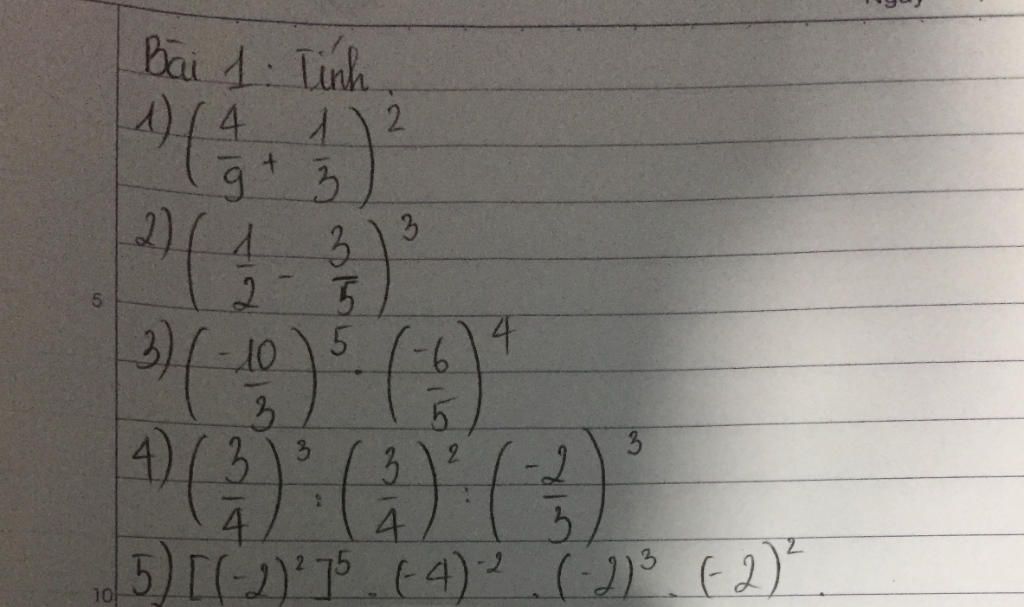 Bài 1: Tính.
1) (4/9 + 1/3)²
2) (1/2 - 3/5)³
3) (-10/3)⁵ . (-6/5)⁴
4) (3/4)³ : (3/4)² : (-2/3)³
5
5) [(-2)²]⁵ . (-4)⁻² . (-2)³ . (-2)² .
10